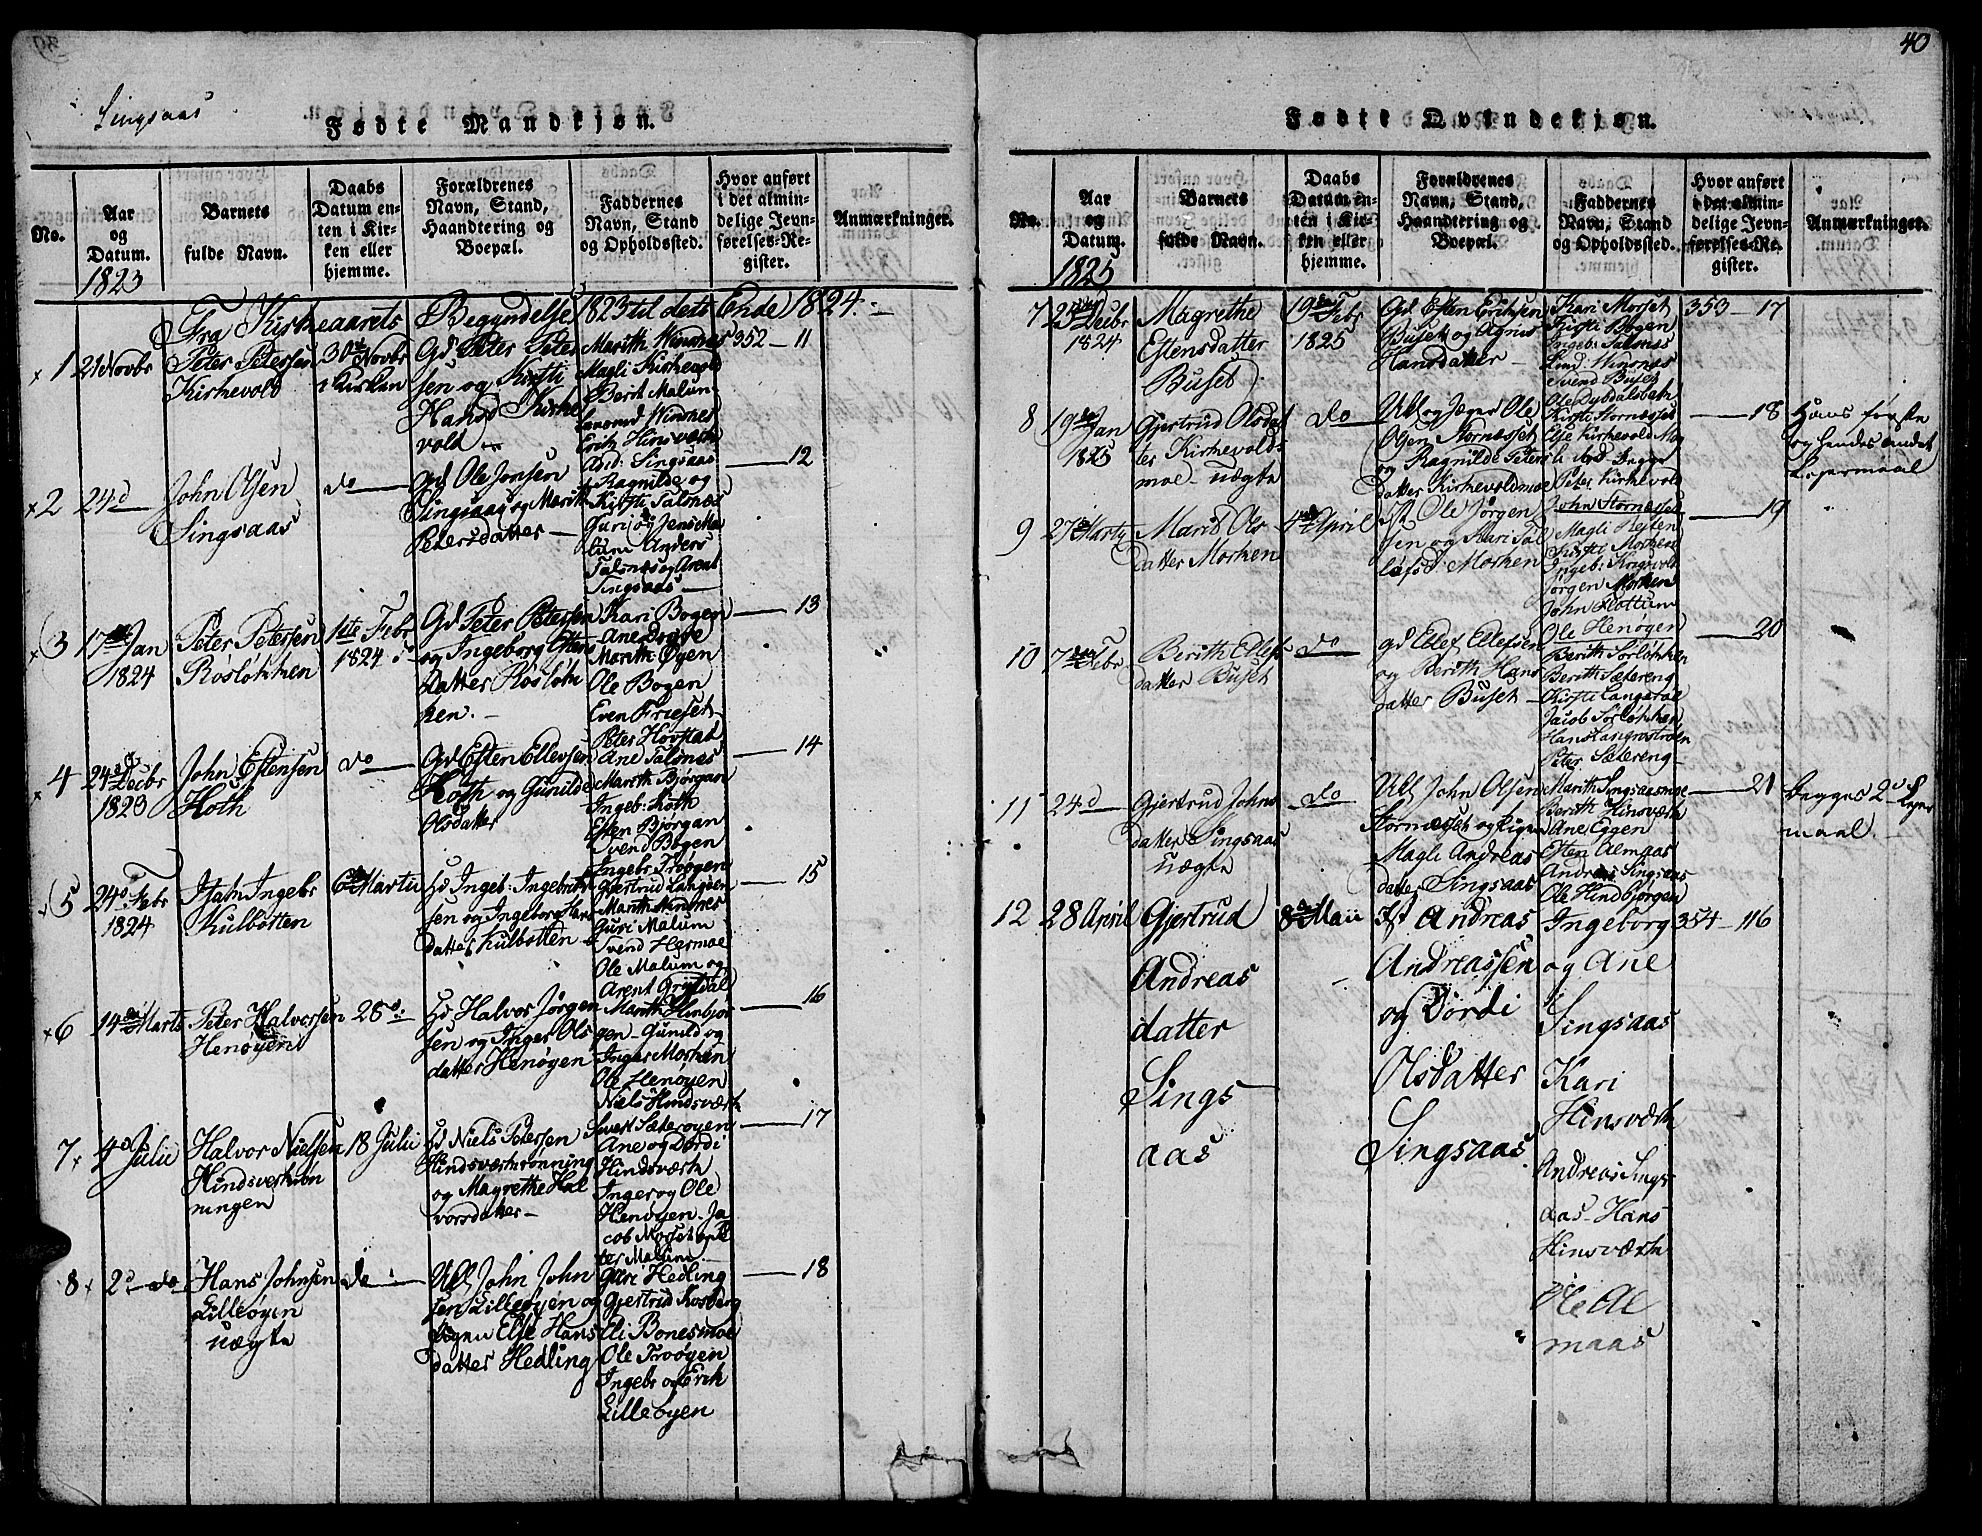 40
Singsaas
Fødte Mandkjøn.
No.
Aar
og
Datum.
1823
Barnets
fulde Navn.
Daabs
Datum en-
ten i Kir-
ken eller
hjemme.
Forældrenes
Navn, Stand,
Haandtering og
Boepæl.
Faddernes
Navn, Stand
og Opholdssted.
Hvor anført
i det almin-
delige Jevn-
førelses-Re-
gister.
Anmærkninger.
Fra Kirkeaarets Begyndelse 1823 til dets Ende 1824.
1
21 Novbr
Peter Petersen
Kirkevold
30te Novbr
i Kirken
Gd Peter Peter
sen og Kirsti
Hansd Kirke
vold
Marith Winsnes
Magli Kirkevold
Berit Malum
Winsnes
Erich Hinsværk
352 - 11
2
24d
John Olsen
Singsaas
do
Gd Ole Jonsen
Singsaas og Marith
Petersdatter
Singsaas
Ragnilde og
Kirsti Talsnæs
Guri og Jens Ma
lum Anders
Talsnes og Arent
Singsaas
12
3
17de Jan
1824
Peter Petersen
Rosløkken
1ste Febr
1824
Gd Peter Petersen
og Ingeborg Estens
datter Rosløk
ken.
Kari Bogen
Ane
Marith Øgen
Ole Bogen
Even Frieset
Peter Hovstad
13
4
24de Decbr
1823
John Estensen
Koth
do
Gd Esten Ellevsen
Koth og Gunilde
Olsdatter
Ane Talsnes
Marith Bjørgan
Ingeb: Koth
Esten Bjørgan
Svend Bogen
14
5
24d Febr
1824
Ingebr
Kulbotten
6te Martii
Hd Ingeb: Ingebrigt
sen og Ingeborg Hans
datter Kulbotten
Ingebr Troøgen
Gjertrud Langøen
Marith Winsnes
Guri Malum
Svend Hæsmoe
Ole Malum og
Arent Grytdal
15
6
14de Marts
Peter Halvorsen
Henøyen
28d:
Hd Halvor Jørgen
sen og Inger Ols
datter Henøyen
Marith Hinbjør
gen Gunild og
Inger Morken
Ole Henøyen
Niels Hindsværk
16
7
4d Julii
Halvor Nielsen
Hindsverkrøn
ningen
18 Julii
Hd Niels Petersen
Hindsværkrønning
og Magrethe Hal
vorsdatter
Sivert Sæterøyen
Ane og Dordi
Hindsværk
Inger og Ole
Henøyen Ja
cob Morset og Pe
ter Malum
17
8
2d do
Hans Johnsen
Lilleøyen
uægte
do
Ukl John John
sen Lilleøyen og
Pigen Else Hans
datter Hedling
Guri Hedling
Gjertrud Kosberg
Eli Bonesmoe
Ole Troøyen
Ingebr og Erik
Lilleøyen
18
Fødte Qvindekjøn.
No.
Aar
og
Datum.
1825
Barnets
fulde Navn.
Daabs
Datum en-
ten i Kir-
ken eller
hjemme.
Forældrenes
Navn, Stand,
Haandtering og
Boepæl.
Faddernes
Navn, Stand
og Opholdssted.
Hvor anført
i det almin-
delige Jevn-
førelses-Re-
gister.
Anmærkninger.
7
Decbr
1824
Magrethe
Estensdatter
Buset
19de Febr
1825
Gd Esten Erichsen
Buset og Agnis
Hansdatter
Kari Morset
Kirsti Bogen
Ingeb: Talsnes
Lind: Winsnes
Svend Buset
Ole Dybdalsbak
353 - 17
8
19de Jan
1825
Gjertrud Olsdat
ter Kirkevold
moe uægte
do
Ukl og Jæger Ole
Olsen Stornæsset
og Ragnilde Peters
datter Kirkevoldmoe
Kirsti Stornæsset
Else Kirkevold Mag
li
Peter Kirkevold
John Stornæsset
18
Hans første
og hendes andet
Leiermaal
9
27de Marts
Marit Ols
datter Morken
4de April
Ist Ole Jørgen
sen og Kari Tol
lefsd: Morken
Magli Hejten
Kirsti Morken
Ingeb: Kongsvold
Jørgen Morken
John Flottum
19
10
7de Febr
Berith Ellefs
datter Buset
do
gd Ellef Ellefsen
og Berith Hans
datter Buset
Ole Henøgen
Berith Sørløkken
Berith Sætereng
Kirsti Langaoe
Jacob Sørløkken
Hans Langøstrøen
Peter Sætereng
20
11
24d
Gjertrud Johns
datter Singsaas
uægte
do
Ukl John Olsen
Stornæsset og Pigen
Magli Andreas
datter Singsaas
Marith Singsaasmoe
Berith Hinsværk
Ane Eggen
Esten Almaas
Andreas Singsaas
Ole Hindbjørgen
21
Begges 2d Leyer
maal
12
28 April
Gjertrud
Andreas
datter
Sings
aas
8d Maii
Ist Andreas
Andreassen
og Dordi
Olsdatter
Singsaas
Ingeborg
og Ane
Singsaas
Kari
Hinsværk
Andreas Sings
aas Hans
Hinsværk
Ole Al
maas
354 - 116